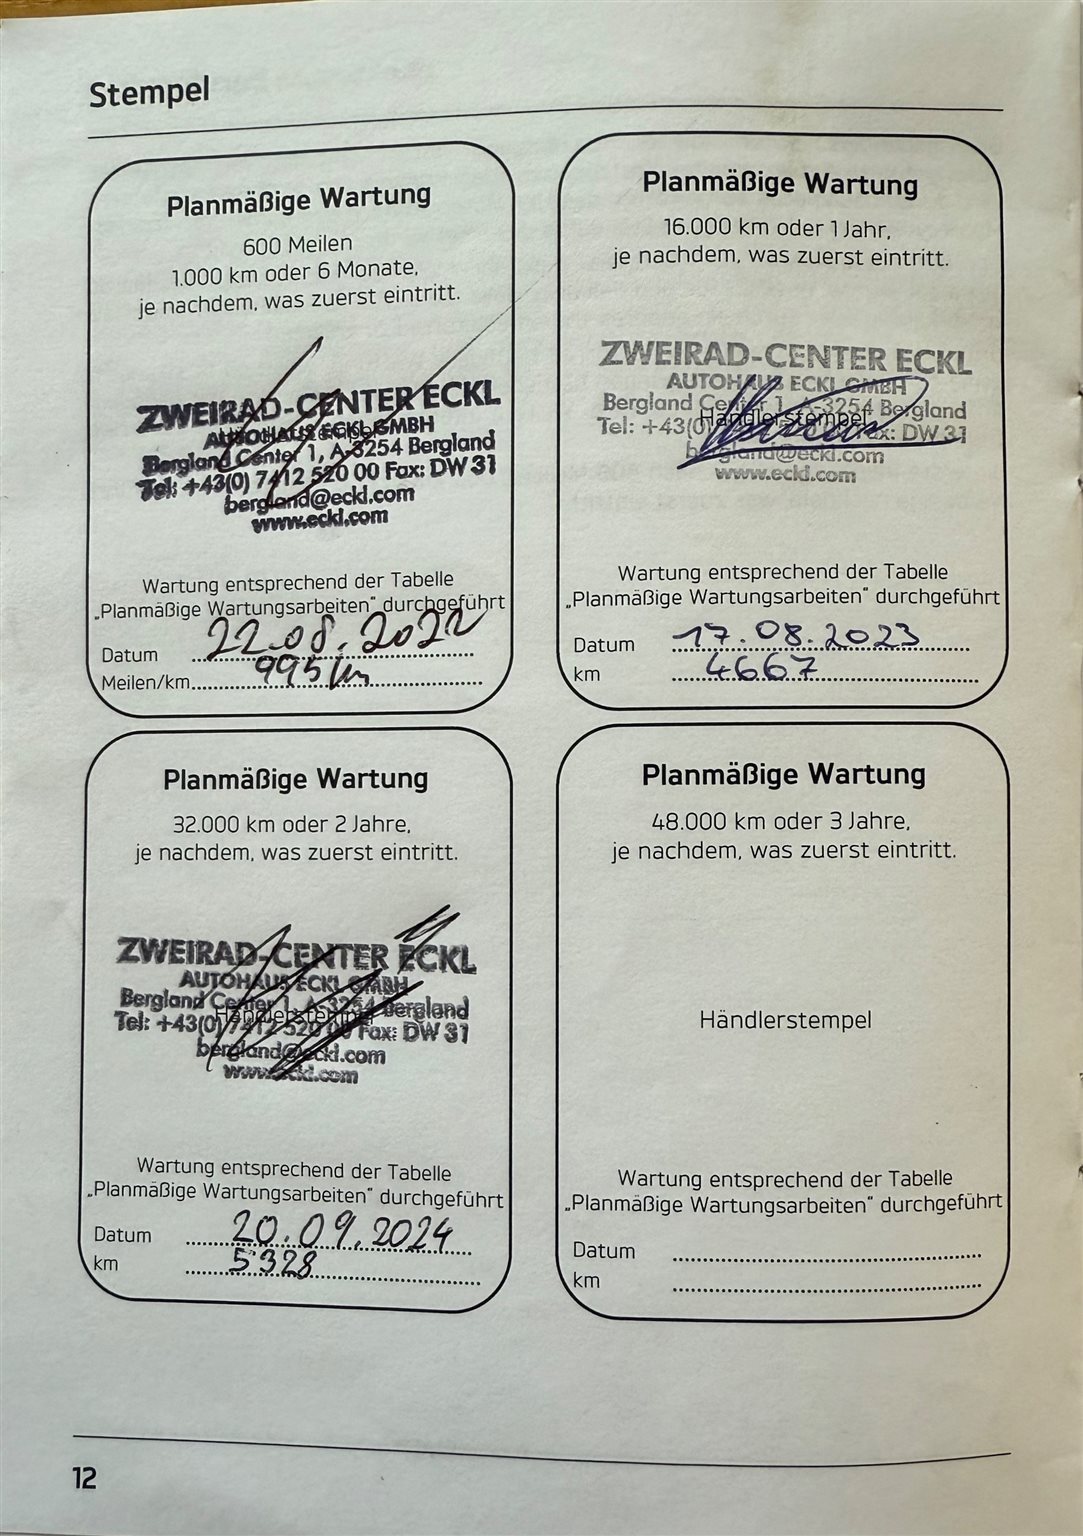 Stempel
Planmäßige Wartung
600 Meilen
1.000 km oder 6 Monate,
je nachdem, was zuerst eintritt.
ZWEIRAD-CENTER ECKL
AUTOHAUS ECKL GMBH
Bergland Center 1, A-3254 Bergland
Tel: +43(0) 7412 520 00 Fax: DW 31
bergland@eckl.com
www.eckl.com
Wartung entsprechend der Tabelle
„Planmäßige Wartungsarbeiten“ durchgeführt
Datum 22.08.2022
Meilen/km 995 km
Planmäßige Wartung
16.000 km oder 1 Jahr,
je nachdem, was zuerst eintritt.
ZWEIRAD-CENTER ECKL
AUTOHAUS ECKL GMBH
Bergland Center 1, A-3254 Bergland
Händlerstempel
Tel: +43(0) Fax: DW 31
bergland@eckl.com
www.eckl.com
Wartung entsprechend der Tabelle
„Planmäßige Wartungsarbeiten“ durchgeführt
Datum 17.08.2023
km 4667
Planmäßige Wartung
32.000 km oder 2 Jahre,
je nachdem, was zuerst eintritt.
ZWEIRAD-CENTER ECKL
AUTOHAUS ECKL GMBH
Bergland Center 1, A-3254 Bergland
Händlerstempel
Tel: +43(0) 7412 520 00 Fax: DW 31
bergland@eckl.com
www.eckl.com
Wartung entsprechend der Tabelle
„Planmäßige Wartungsarbeiten“ durchgeführt
Datum 20.09.2024
km 5328
Planmäßige Wartung
48.000 km oder 3 Jahre,
je nachdem, was zuerst eintritt.
Händlerstempel
Wartung entsprechend der Tabelle
„Planmäßige Wartungsarbeiten“ durchgeführt
Datum
km
12